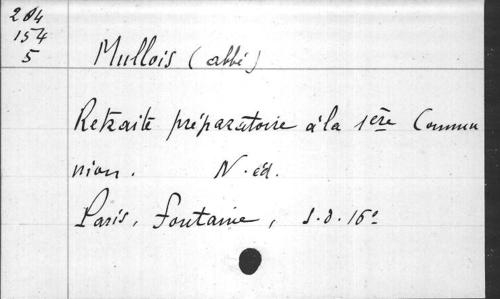 204
154
5
Mullois (abbé)
Retraite préparatoire à la 1ère Commu
nion. N. éd.
Paris, Fontaine, s.d. 16°